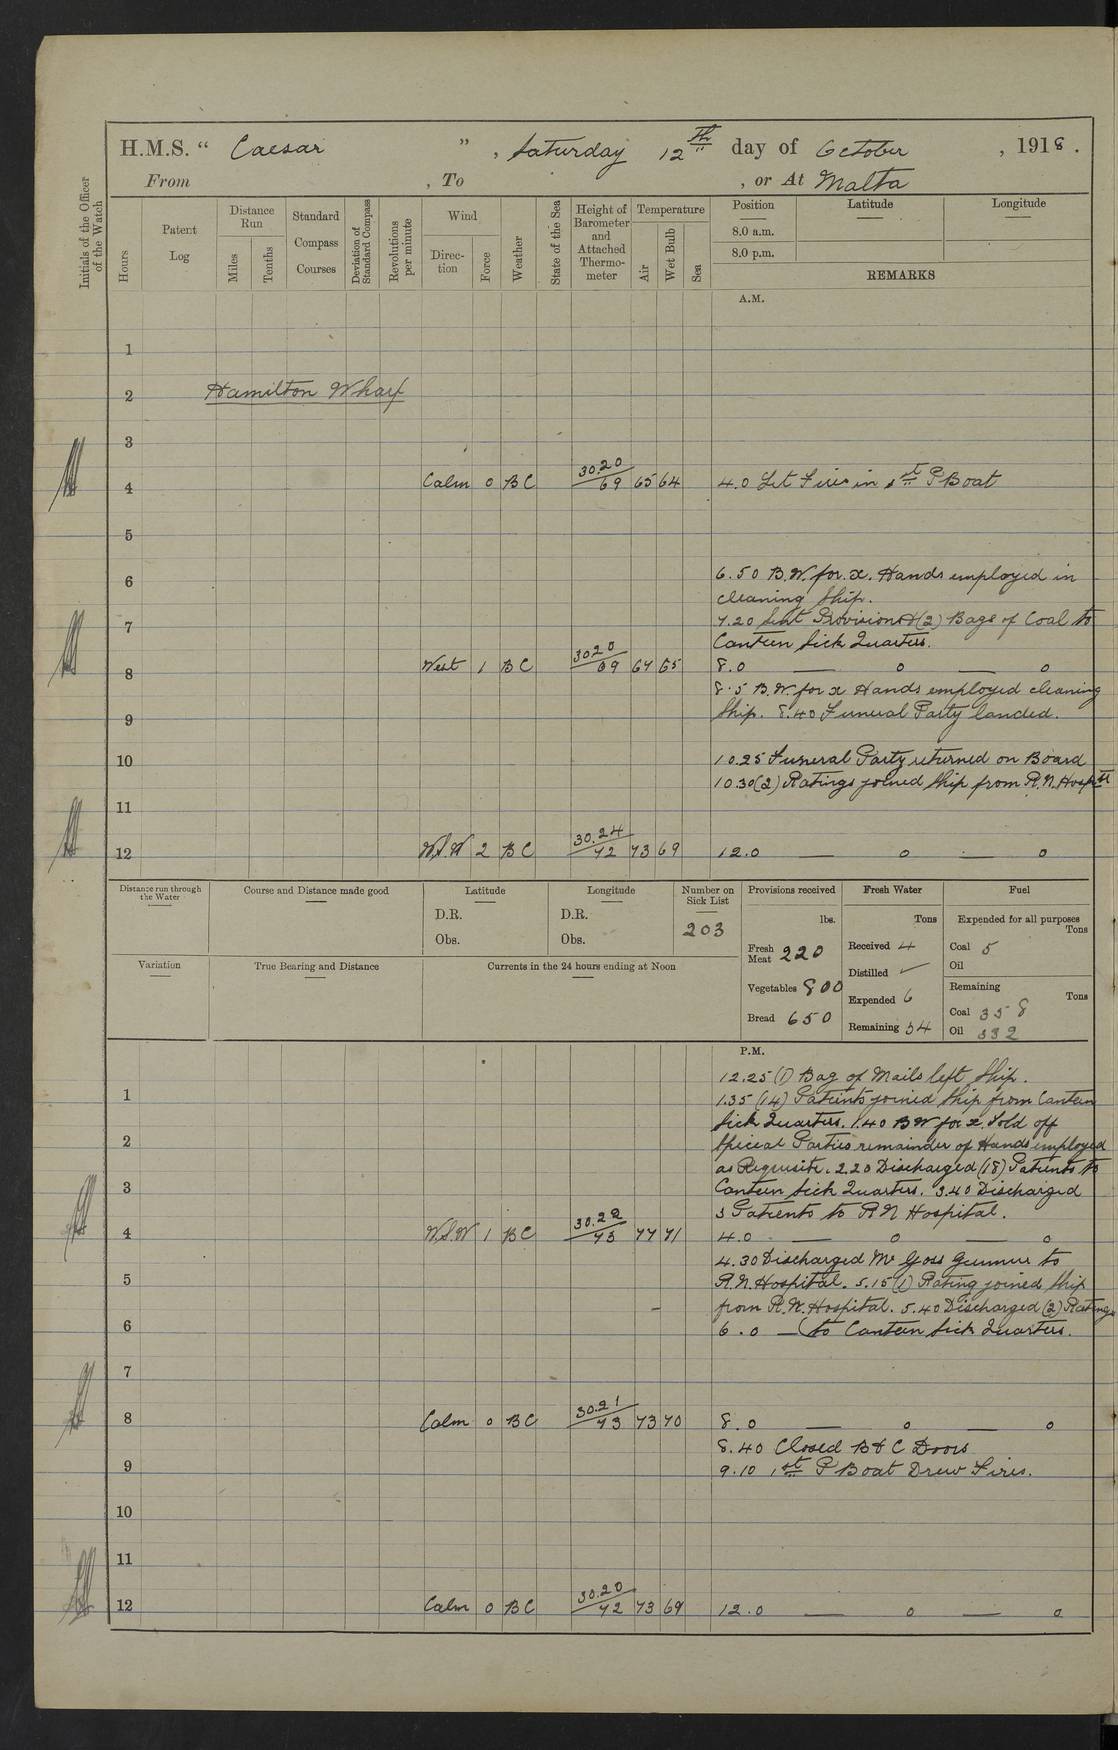 H.M.S. " Caesar " , Saturday 12th day of October , 1918 .
From , To , or At Malta
Initials of the Officer of the Watch
Hours
Patent Log
Distance Run
Miles
Tenths
Standard Compass Courses
Deviation of Standard Compass
Revolutions per minute
Wind
Direction
Force
Weather
State of the Sea
Height of Barometer and Attached Thermometer
Temperature
Air
Wet Bulb
Sea
Position Latitude Longitude
8.0 a.m.
8.0 p.m.
REMARKS
A.M.
1
2 Hamilton Wharf
3
4 Calm 0 BC 30.20/69 65 64 4.0 Lit Fires in 1st P Boat
5
6 6.50 B.W. for x. Hands employed in
cleaning Ship.
7 7.20 Sent Provisions & (2) Bags of Coal to
Canteen Sick Quarters.
8 West 1 BC 3020/69 67 65 8.0 — 0 — 0
8.5 B.W. for x Hands employed cleaning
9 Ship. 8.40 Funeral Party landed.
10 10.25 Funeral Party returned on Board
10.30 (2) Ratings joined Ship from R.N. Hospitl
11
12 W.S.W 2 BC 30.24/72 73 69 12.0 — 0 — 0
Distance run through the Water
Course and Distance made good
Latitude
D.R.
Obs.
Longitude
D.R.
Obs.
Number on Sick List
203
Provisions received
lbs.
Fresh Meat 220
Vegetables 800
Bread 650
Fresh Water
Tons
Received 4
Distilled ✓
Expended 6
Remaining 54
Fuel
Expended for all purposes
Tons
Coal 5
Oil
Remaining
Tons
Coal 358
Oil 332
Variation
True Bearing and Distance
Currents in the 24 hours ending at Noon
P.M.
12.25 (1) Bag of Mails left Ship.
1 1.35 (14) Patients joined Ship from Canteen
Sick Quarters. 1.40 BW for x. Told off
2 Special Parties remainder of Hands employed
as Requisite. 2.20 Discharged (18) Patients to
3 Canteen Sick Quarters. 3.40 Discharged
3 Patients to RN Hospital.
4 W.S.W 1 BC 30.22/73 77 71 4.0 — 0 — 0
4.30 Discharged Mr Goss Gunner to
5 R.N. Hospital. 5.15 (1) Rating joined Ship
from R.N. Hospital. 5.40 Discharged (2) Ratings
6 6.0 — (to Canteen Sick Quarters.
7
8 Calm 0 BC 30.21/73 73 70 8.0 — 0 — 0
8.40 Closed B & C Doors
9 9.10 1st P Boat Drew Fires.
10
11
12 Calm 0 BC 30.20/72 73 69 12.0 — 0 — 0